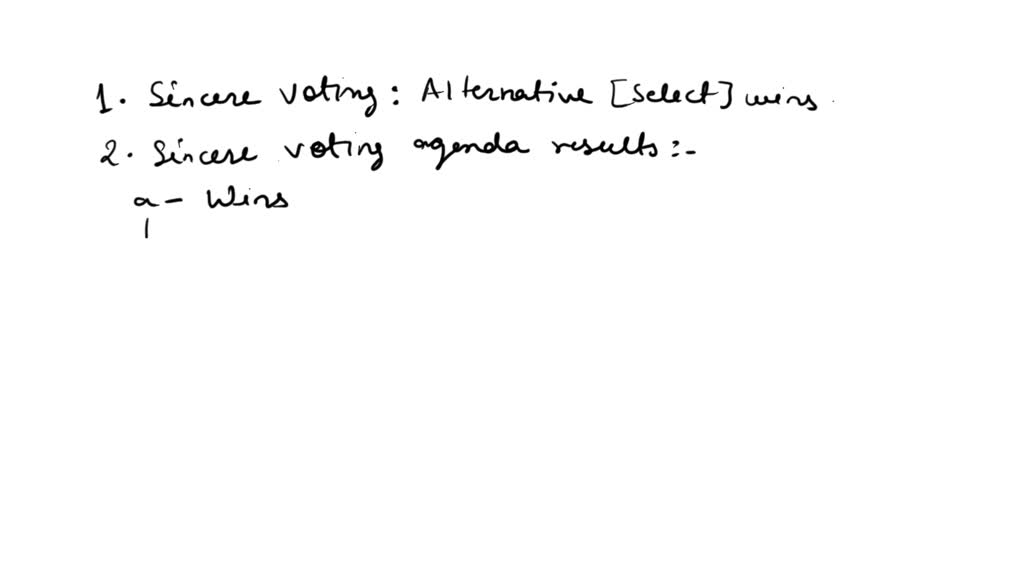 1. Sincere voting: Alternative [select] wins.
2. Sincere voting agenda results :-
a - Wins